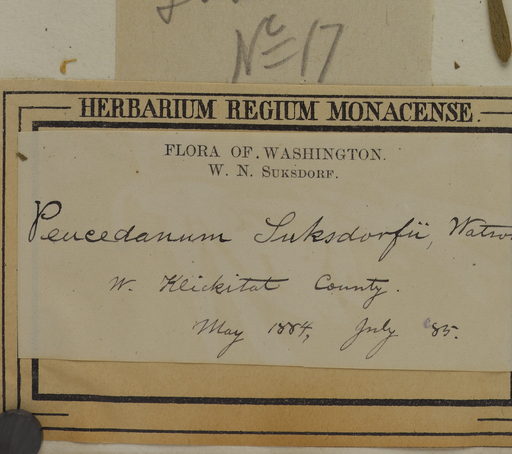 Nº 17
HERBARIUM REGIUM MONACENSE.
FLORA OF WASHINGTON.
W. N. SUKSDORF.
Peucedanum Suksdorfii, Watso
W. Klickitat County.
May 1884, July '85.